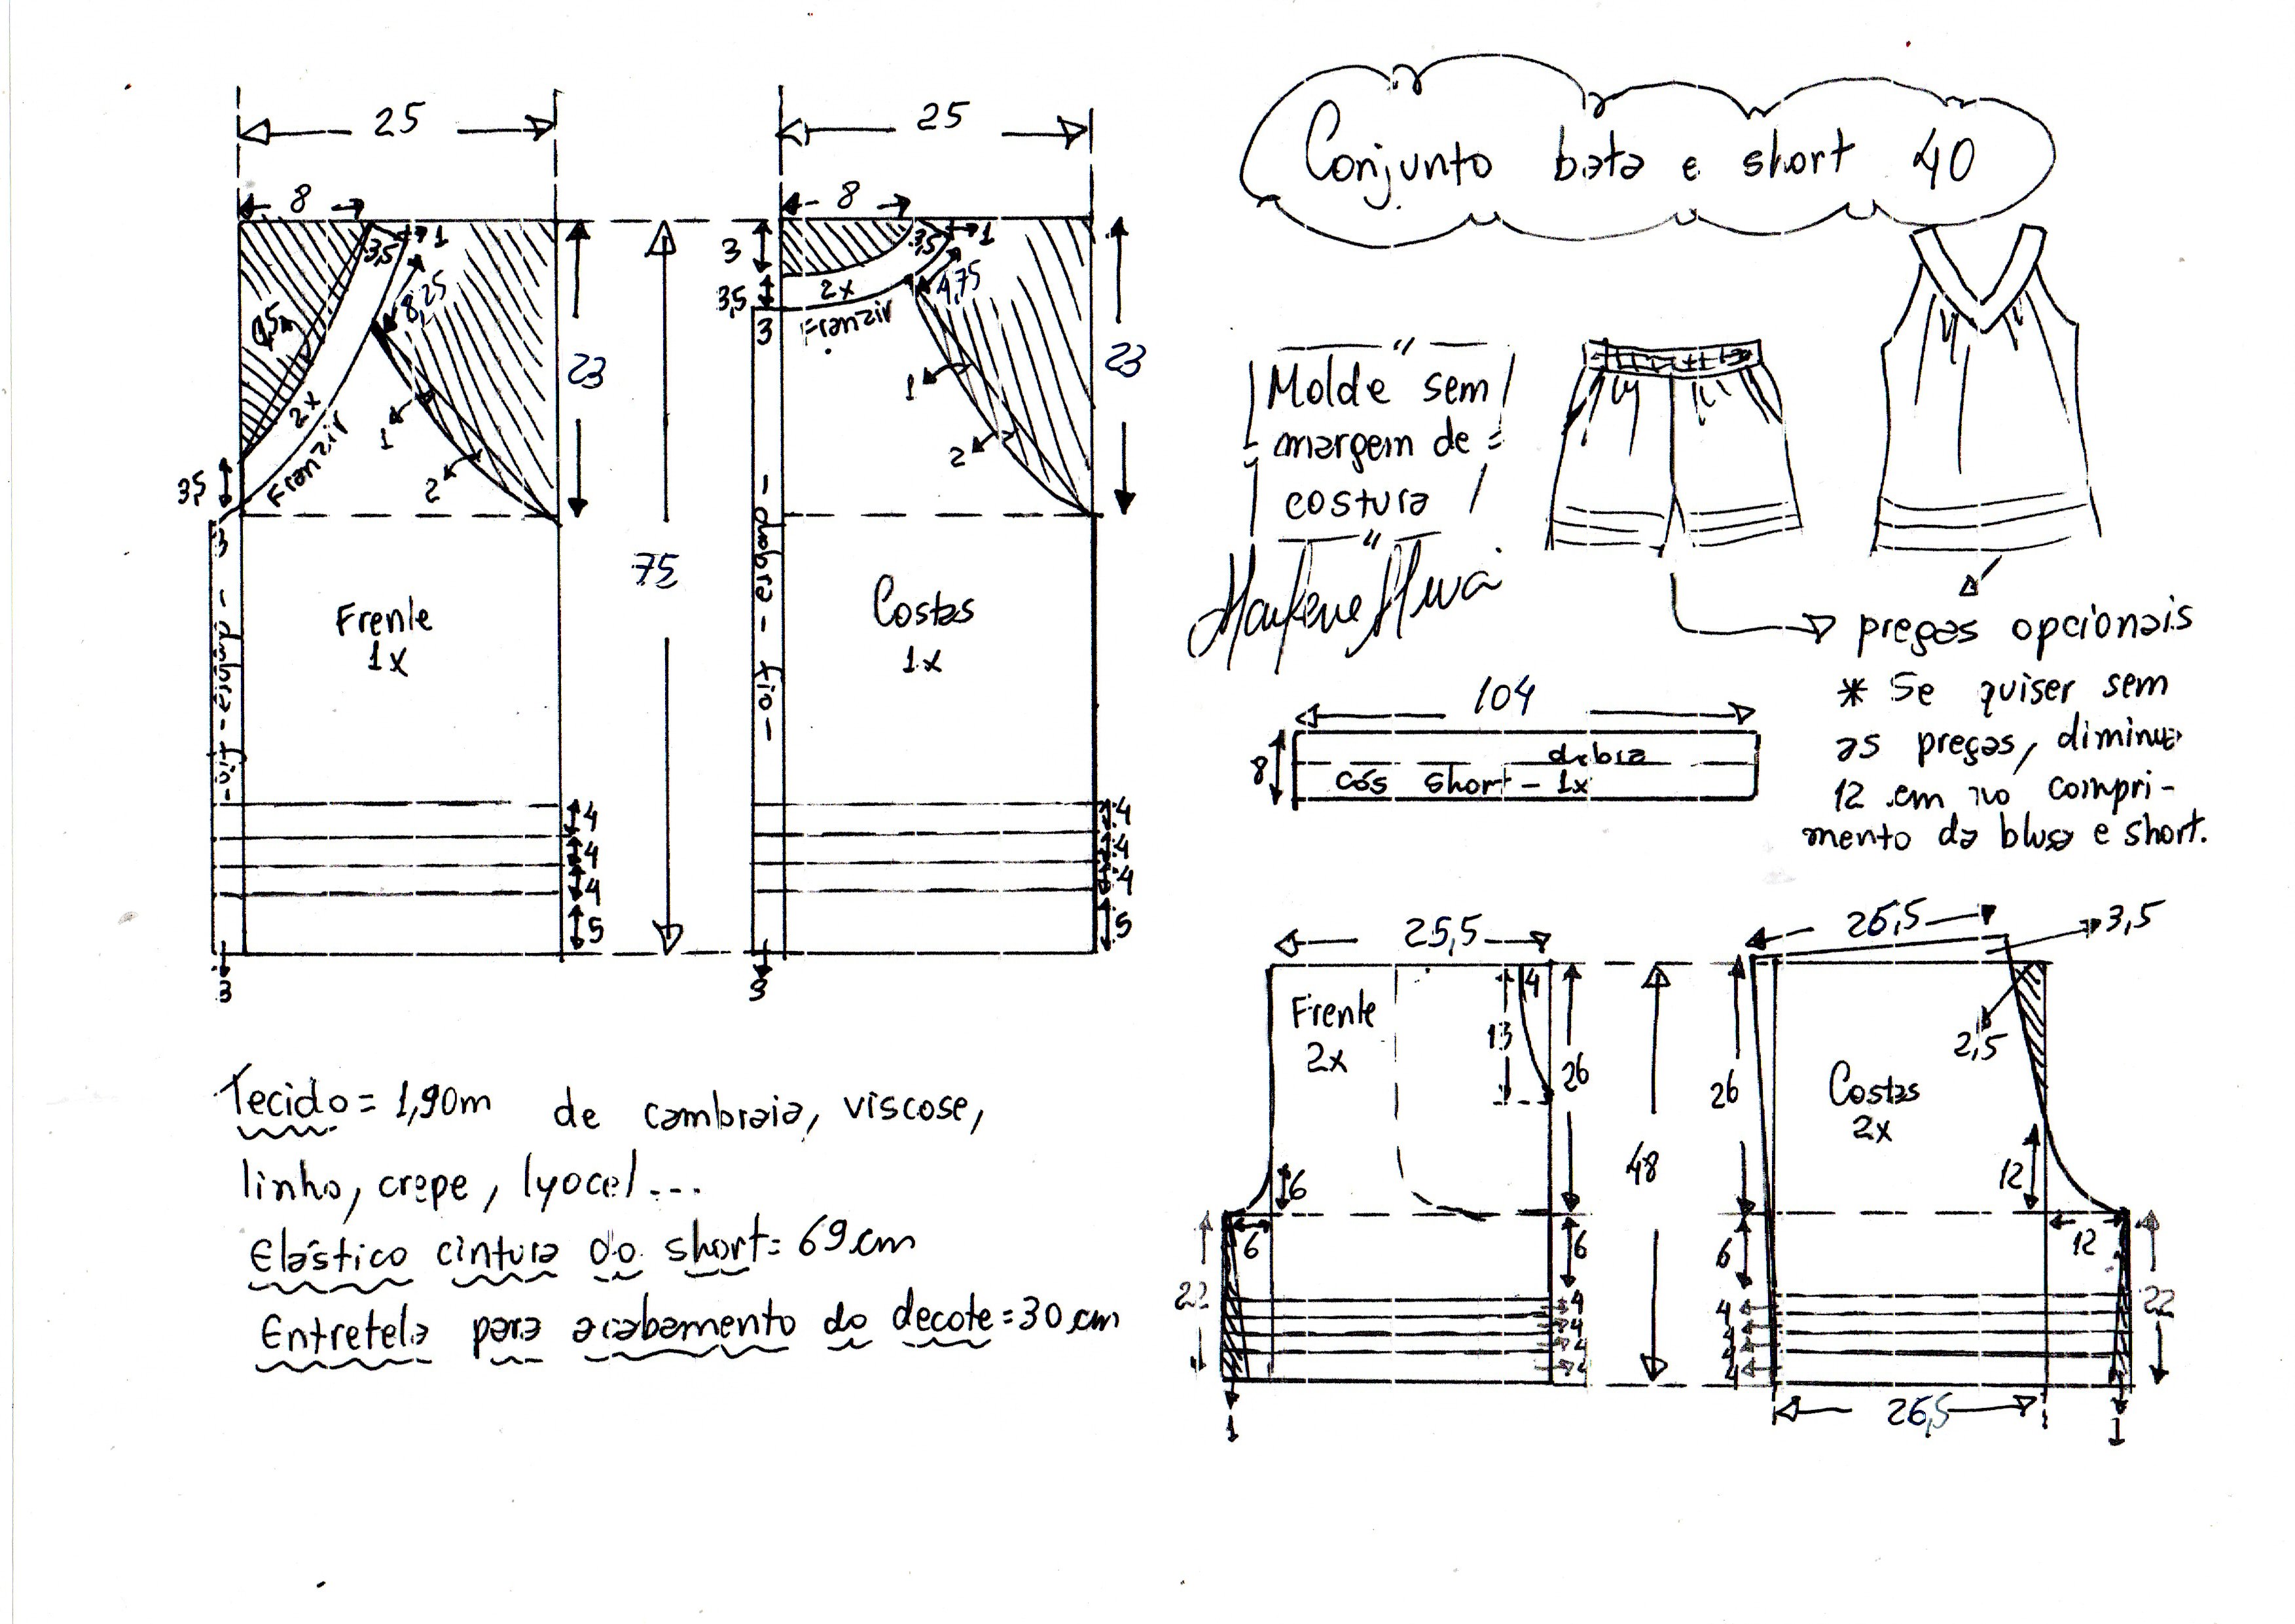 Conjunto bata e short 40
25
8
3,5
1
8,25
0,5
2x
Franzir
3,5
3
1
2
23
75
Frente
1x
- dobra - fio -
4
4
4
5
3
25
8
3
3,5
3,5
1
4,75
2x
Franzir
3
1
2
23
Costas
1x
- dobra - fio -
4
4
4
5
3
"
Molde sem
margem de
costura
"
pregas opcionais
* Se quiser sem
as pregas, diminua
12 cm no compri-
mento da blusa e short.
104
8
dobra
cós short - 1x
25,5
Frente
2x
4
13
26
6
6
6
22
4
4
4
4
1
48
26,5
3,5
2,5
26
Costas
2x
12
12
6
4
4
4
4
22
26,5
1
Tecido = 1,90m de cambraia, viscose,
linho, crepe, lyocel ...
Elástico cintura do short = 69 cm
Entretela para acabamento do decote = 30 cm